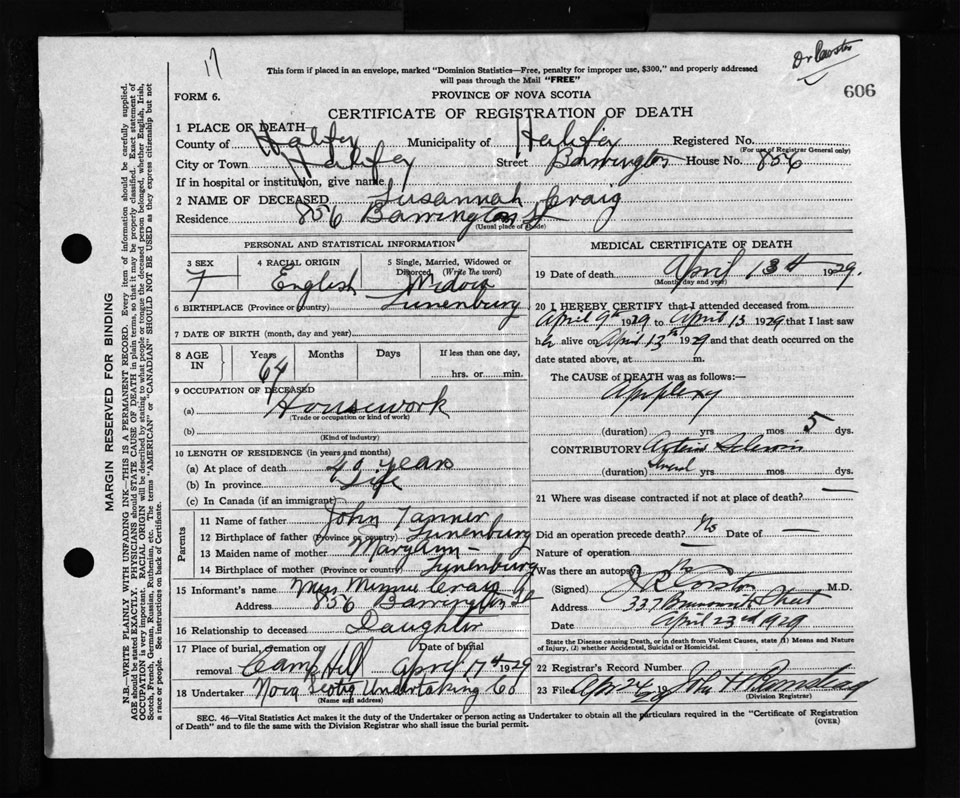 17
Dr Corston
This form if placed in an envelope, marked "Dominion Statistics—Free, penalty for improper use, $300," and properly addressed
will pass through the Mail "FREE"
606
FORM 6.
PROVINCE OF NOVA SCOTIA
CERTIFICATE OF REGISTRATION OF DEATH
1 PLACE OF DEATH
County of Halifax Municipality of Halifax Registered No.
(For use of Registrar General only)
City or Town Halifax Street Barrington House No. 856
If in hospital or institution, give name
2 NAME OF DECEASED Susannah Craig
Residence 856 Barrington St
(Usual place of abode)
PERSONAL AND STATISTICAL INFORMATION
3 SEX 4 RACIAL ORIGIN 5 Single, Married, Widowed or
Divorced (Write the word)
F English Widow
6 BIRTHPLACE (Province or country) Lunenburg
7 DATE OF BIRTH (month, day and year)
8 AGE IN Years Months Days If less than one day,
64 hrs. or min.
9 OCCUPATION OF DECEASED
(a) Housework
(Trade or occupation or kind of work)
(b)
(Kind of industry)
10 LENGTH OF RESIDENCE (in years and months)
(a) At place of death 40 years
(b) In province Life
(c) In Canada (if an immigrant)
Parents
11 Name of father John Tanner
12 Birthplace of father (Province or country) Lunenburg
13 Maiden name of mother Mary Ann —
14 Birthplace of mother (Province or country) Lunenburg
15 Informant's name Miss Minnie Craig
Address 856 Barrington St
16 Relationship to deceased Daughter
17 Place of burial, cremation or Date of burial
removal Camp Hill April 17th 1929
18 Undertaker Nova Scotia Undertaking Co
(Name and address)
MEDICAL CERTIFICATE OF DEATH
19 Date of death April 13th 1929.
(Month, day and year)
20 I HEREBY CERTIFY that I attended deceased from
April 9th 1929 to April 13 1929 that I last saw
h alive on April 13th 1929 and that death occurred on the
date stated above, at m.
The CAUSE of DEATH was as follows:—
Apoplexy
(duration) yrs mos 5 dys.
CONTRIBUTORY Arterio Sclerosis
(duration) several yrs mos dys.
21 Where was disease contracted if not at place of death? —
Did an operation precede death? No Date of —
Nature of operation —
Was there an autopsy? No
(Signed) J R Corston M.D.
Address 337 Brunswick Street
Date April 23rd 1929
State the Disease causing Death, or in death from Violent Causes, state (1) Means and Nature
of Injury, (2) whether Accidental, Suicidal or Homicidal.
22 Registrar's Record Number
23 Filed Apr 24 1929
(Division Registrar)
SEC. 46—Vital Statistics Act makes it the duty of the Undertaker or person acting as Undertaker to obtain all the particulars required in the "Certificate of Registration
of Death" and to file the same with the Division Registrar who shall issue the burial permit.
(OVER)
MARGIN RESERVED FOR BINDING
N.B.—WRITE PLAINLY WITH UNFADING INK—THIS IS A PERMANENT RECORD. Every item of information should be carefully supplied.
AGE should be stated EXACTLY. PHYSICIANS should STATE CAUSE OF DEATH in plain terms, so that it may be properly classified. Exact statement of
OCCUPATION is very important. RACIAL ORIGIN will be described by stating to what people or tongue the deceased person belonged, whether English, Irish,
Scotch, French, German, Russian, Ruthenian, etc. The terms "AMERICAN" or "CANADIAN" SHOULD NOT BE USED as they express citizenship but not
a race or people. See instructions on back of Certificate.